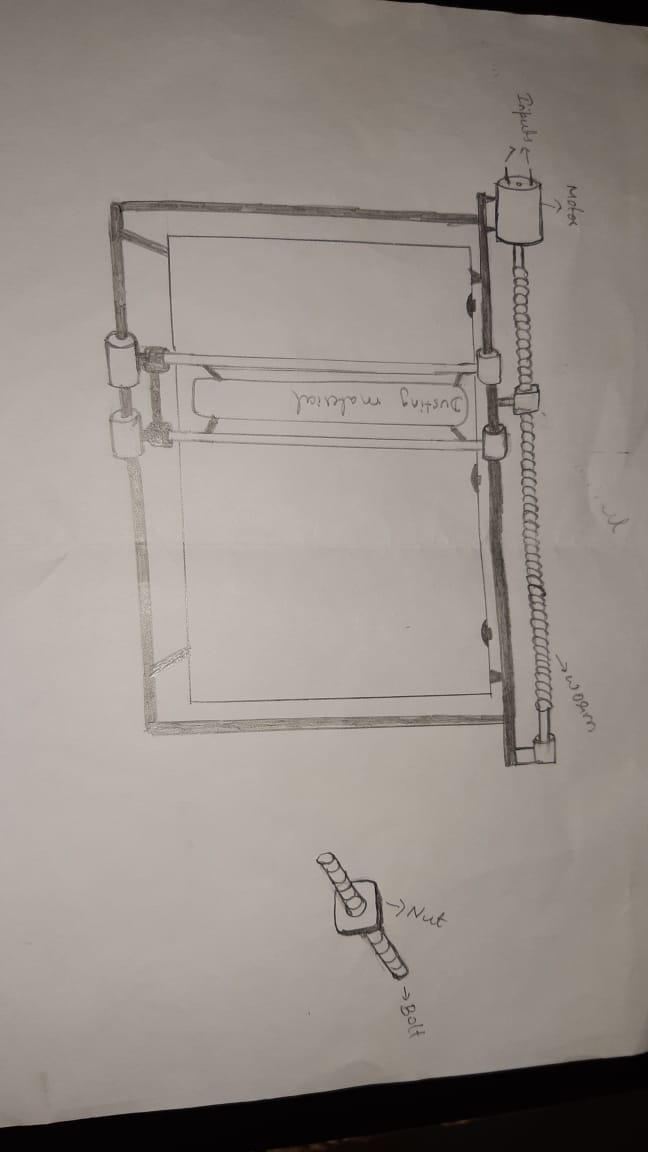 Inputs
Motor
Dusting material
worm
Nut
Bolt